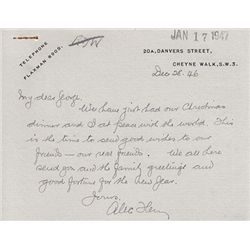 TELEPHONE
FLAXMAN 9000.
JAN 17 1947
20A, DANVERS STREET,
CHEYNE WALK, S.W.3.
Dec 28. 46
My dear George,
We have just had our Christmas
dinner and I at peace with the world. This
is the time to send good wishes to our
friends — our real friends. We all here
send you and the family greetings and
good fortune for the New Year.
Yours,
Alec